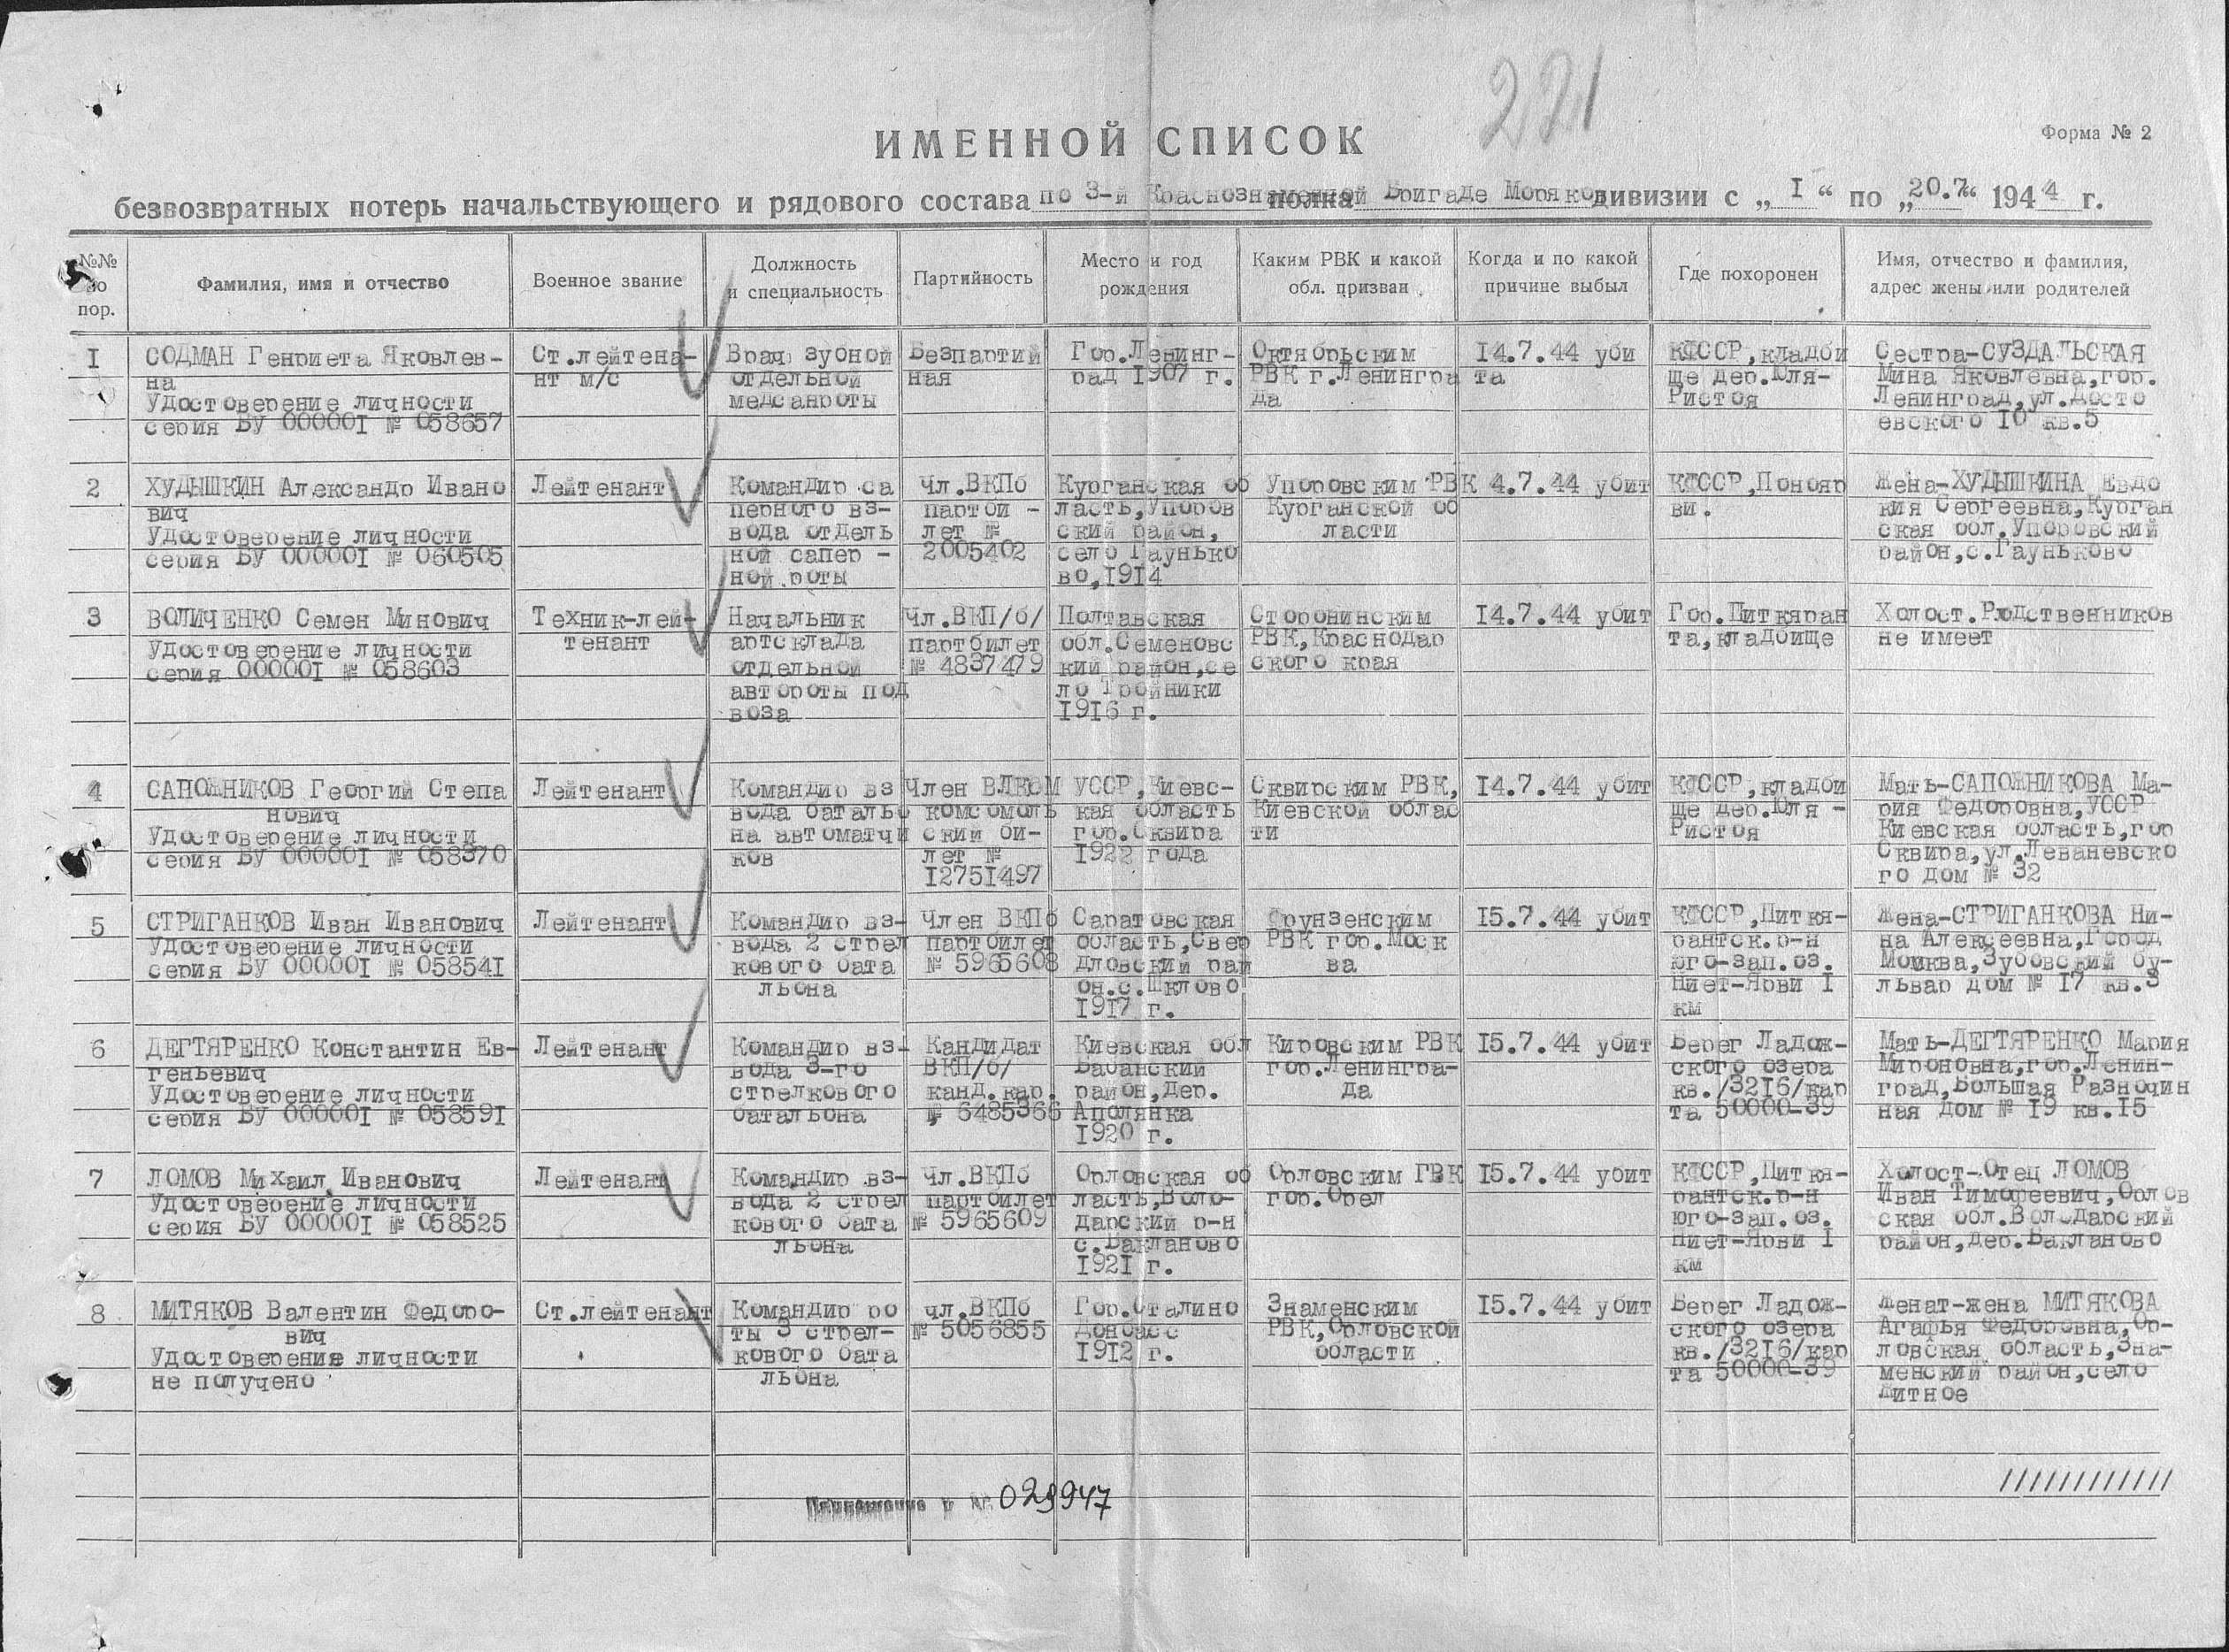 221
ИМЕННОЙ СПИСОК
Форма № 2
безвозвратных потерь начальствующего и рядового состава по 3-й Краснознаменной полка Бригаде Моряков дивизии с „ I “ по „ 20.7 “ 1944 г.
№№ по пор.
Фамилия, имя и отчество
Военное звание
Должность и специальность
Партийность
Место и год рождения
Каким РВК и какой обл. призван
Когда и по какой причине выбыл
Где похоронен
Имя, отчество и фамилия, адрес жены или родителей
I
СОДМАН Генриета Яковлев-
на
Удостоверение личности
серия БУ 000001 № 058657
Ст.лейтена-
нт м/с
Врач зубной
отдельной
медсанроты
Безпартий
ная
Гор.Ленинг-
рад 1907 г.
Октябрьским
РВК г.Ленингра
да
14.7.44 уби
та
КФССР,кладби
ще дер.Юля-
Ристоя
Сестра-СУЗДАЛЬСКАЯ
Мина Яковлевна,гор.
Ленинград,ул.Досто
евского 10 кв.5
2
ХУДЫШКИН Александр Ивано
вич
Удостоверение личности
серия БУ 000001 № 060505
Лейтенант
Командир са
перного вз-
вода отдель
ной сапер -
ной роты
Чл.ВКПб
партби -
лет №
2005402
Курганская об
ласть,Упоров
ский район,
село Гаунько
во,1914
Упоровским РВК
Курганской об
ласти
4.7.44 убит
КФССР,Понояр
ви.
Жена-ХУДЫШКИНА Евдо
кия Сергеевна,Курган
ская обл.Упоровский
район,с.Гауньково
3
ВОЛИЧЕНКО Семен Минович
Удостоверение личности
серия 000001 № 058603
Техник-лей-
тенант
Начальник
артсклада
отдельной
автороты под
воза
Чл.ВКП/б/
партбилет
№ 4837479
Полтавская
обл.Семеновс
кий район,се
ло Тройники
1916 г.
Сторовинским
РВК,Краснодар
ского края
14.7.44 убит
Гор.Питкяран
та,кладбище
Холост.Родственников
не имеет
4
САПОЖНИКОВ Георгий Степа
нович
Удостоверение личности
серия БУ 000001 № 058370
Лейтенант
Командир вз
вода батальо
на автоматчи
ков
Член ВЛКСМ
комсомоль
ский би-
лет №
12751497
УССР,Киевс-
кая область
гор.Сквира
1922 года
Сквирским РВК,
Киевской облас
ти
14.7.44 убит
КФССР,кладби
ще дер.Юля -
Ристоя
Мать-САПОЖНИКОВА Ма-
рия Федоровна,УССР
Киевская область,гор
Сквира,ул.Леваневско
го дом № 32
5
СТРИГАНКОВ Иван Иванович
Удостоверение личности
серия БУ 000001 № 058541
Лейтенант
Командир вз-
вода 2 стрел
кового бата
льона
Член ВКПб
партбилет
№ 5965608
Саратовская
область,Свер
дловский рай
он.с.Шклово
1917 г.
Фрунзенским
РВК гор.Моск
ва
15.7.44 убит
КФССР,Питкя-
рантск.р-н
юго-зап.оз.
Ниет-Ярви 1
км
Жена-СТРИГАНКОВА Ни-
на Алексеевна,Город
Москва,Зубовский бу-
львар дом № 17 кв.3
6
ДЕГТЯРЕНКО Константин Ев-
геньевич
Удостоверение личности
серия БУ 000001 № 058591
Лейтенант
Командир вз-
вода 3-го
стрелкового
батальона
Кандидат
ВКП/б/
канд.кар.
№ 6485366
Киевская обл
Бабанский
район,дер.
Аполянка
1920 г.
Кировским РВК
гор.Ленингра-
да
15.7.44 убит
Берег Ладож-
ского озера
кв./3216/кар
та 50000-39
Мать-ДЕГТЯРЕНКО Мария
Мироновна,гор.Ленин-
град,Большая Разночин
ная дом № 19 кв.15
7
ЛОМОВ Михаил Иванович
Удостоверение личности
серия БУ 000001 № 058525
Лейтенант
Командир вз-
вода 2 стрел
кового бата
льона
Чл.ВКПб
партбилет
№ 5965609
Орловская об
ласть,Воло-
дарский р-н
с.Бакланово
1921 г.
Орловским ГВК
гор.Орел
15.7.44 убит
КФССР,Питкя-
рантск.р-н
юго-зап.оз.
Ниет-Ярви 1
км
Холост-Отец ЛОМОВ
Иван Тимофеевич,Орлов
ская обл.Володарский
район,дер.Бакланово
8
МИТЯКОВ Валентин Федоро-
вич
Удостоверение личности
не получено
Ст.лейтенант
Командир ро
ты 3 стрел-
кового бата
льона
чл.ВКПб
№ 5056855
Гор.Сталино
Донбасс
1912 г.
Знаменским
РВК,Орловской
области
15.7.44 убит
Берег Ладож-
ского озера
кв./3216/кар
та 50000-39
Женат-жена МИТЯКОВА
Агафья Федоровна,Ор-
ловская область,Зна-
менский район,село
Житное
////////////
029947